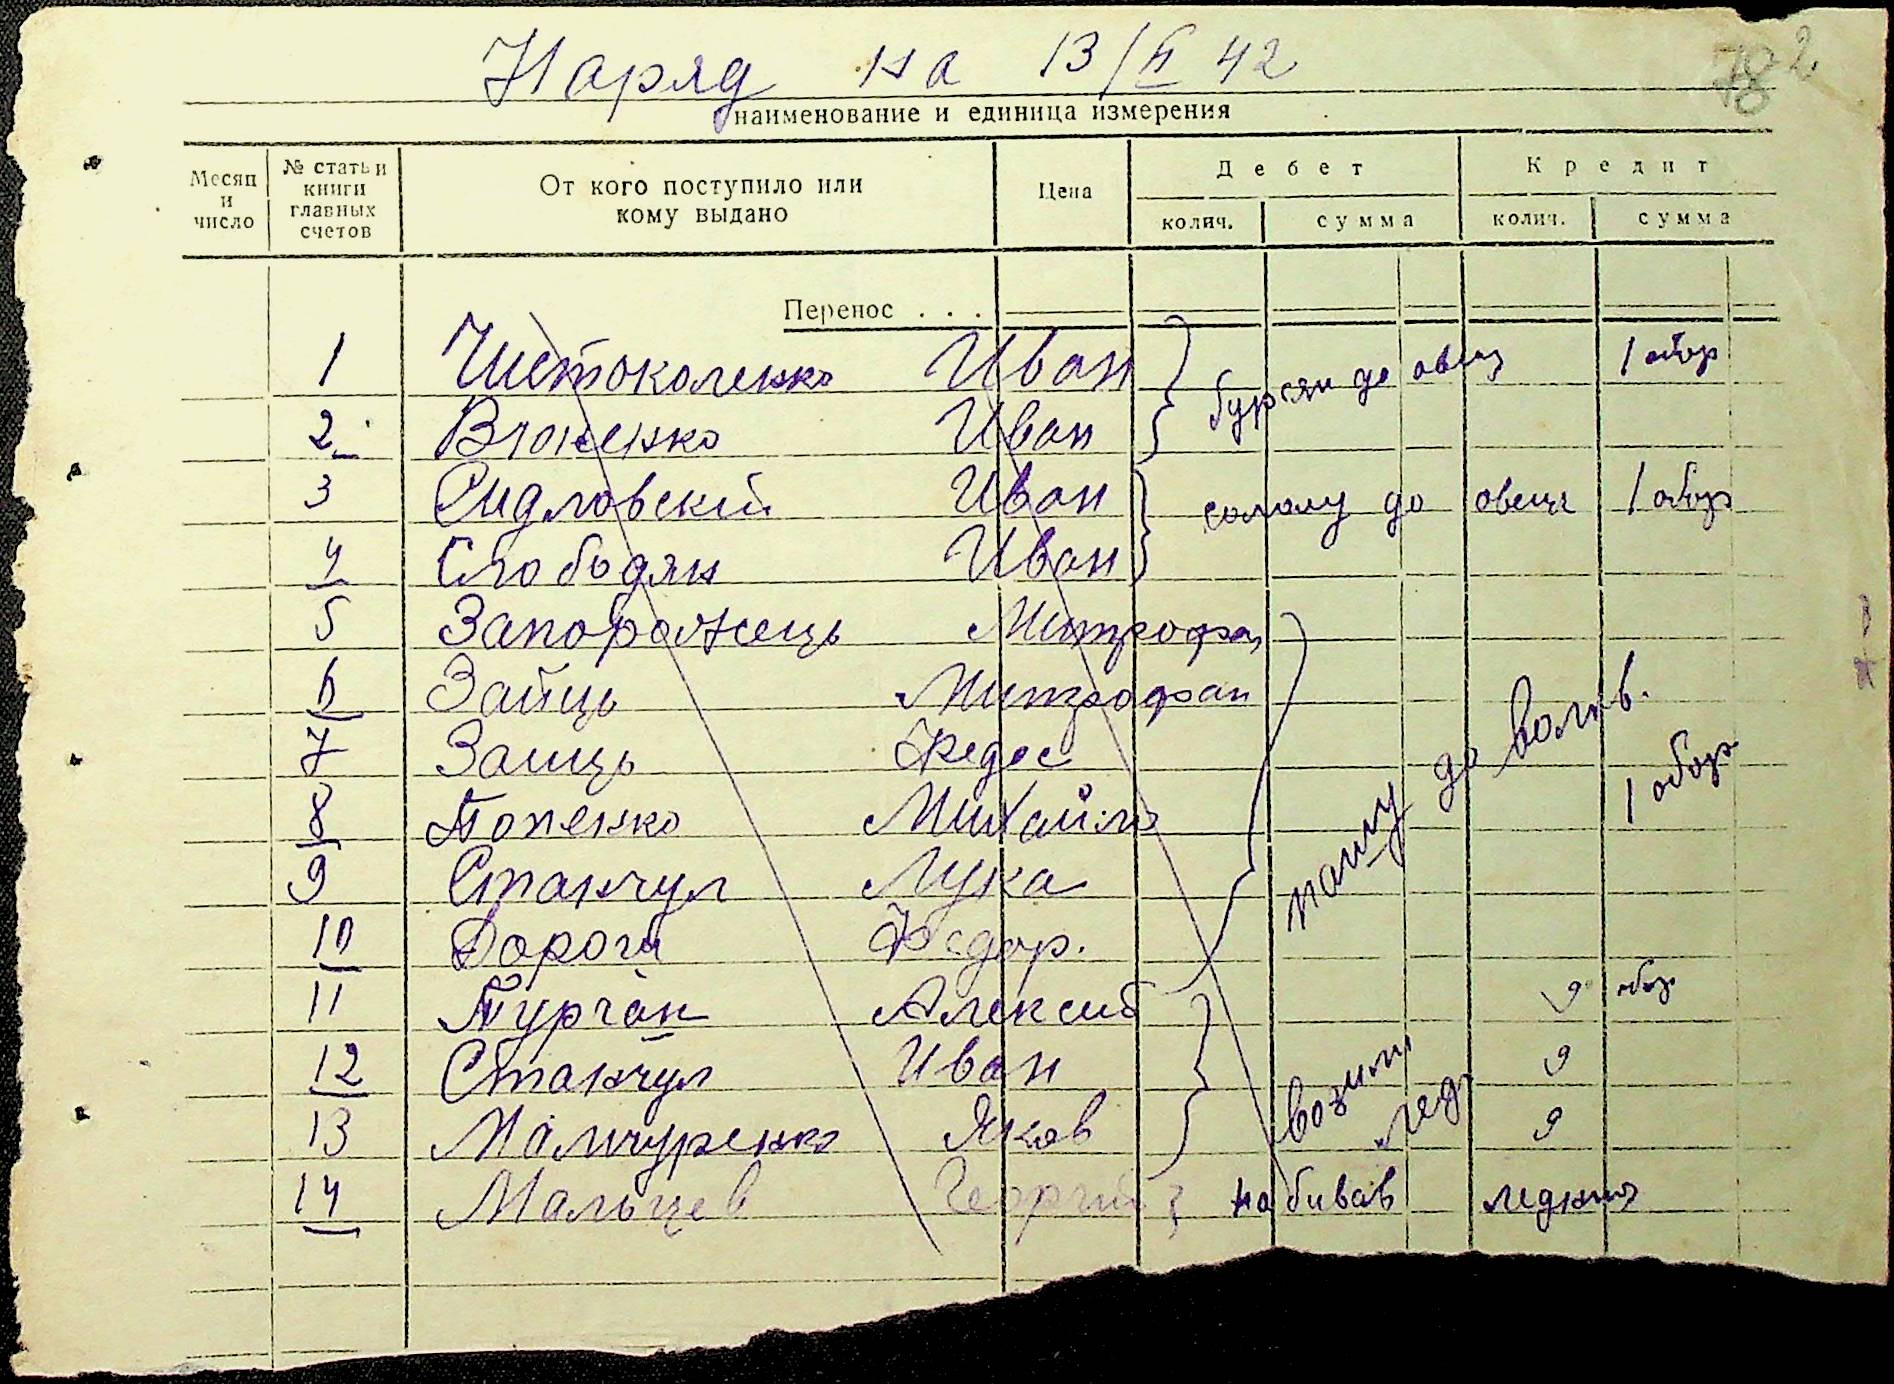 Наряд на 13/II 42
782
наименование и единица измерения
Месяц и число
№ статьи книги главных счетов
От кого поступило или кому выдано
Цена
Дебет
Кредит
колич.
сумма
колич.
сумма
Перенос . . .
1 Чистоколенко Иван бурян до овец 1 обор
2 Иван
3 Сидловскій Иван солому до овец 1 обор
4 Слободян Иван
5 Запорожець Митрофан
6 Зайць Митрофан
7 Заиць Федос
8 Попенко Михайло
9 Станчул Лука
10 Дорога Федор.
пашу до волів. 1 обор
11 Турчан Алексей 9 обор
12 Станчул Иван 9
13 Мамчуренко Яков 9
возили лед
14 Мальцев Георгий набивав ледник